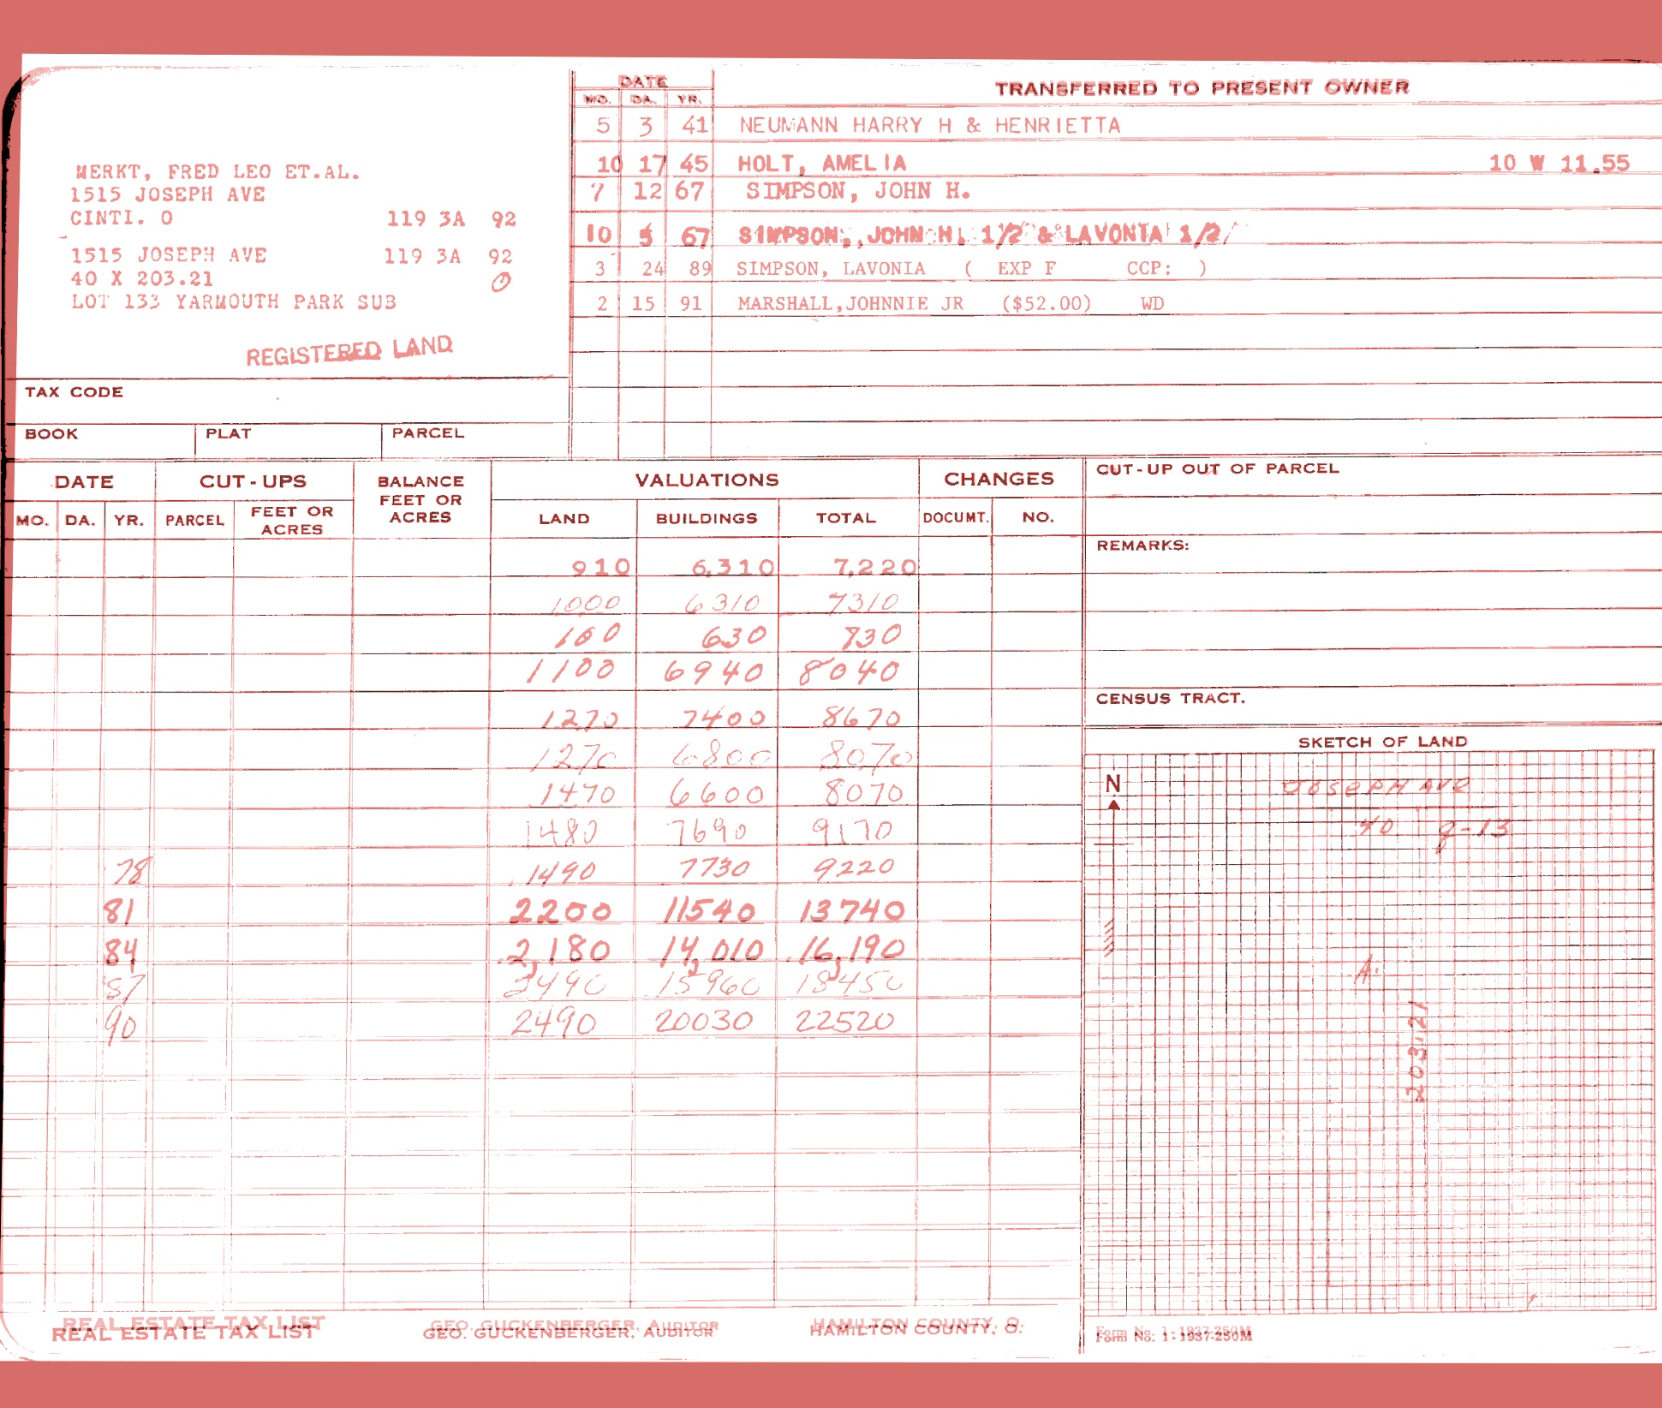 MERKT, FRED LEO ET.AL.
1515 JOSEPH AVE
CINTI. O 119 3A 92
1515 JOSEPH AVE 119 3A 92
40 X 203.21 0
LOT 133 YARMOUTH PARK SUB
REGISTERED LAND
TAX CODE
BOOK PLAT PARCEL
DATE TRANSFERRED TO PRESENT OWNER
MO. DA. YR.
5 3 41 NEUMANN HARRY H & HENRIETTA
10 17 45 HOLT, AMELIA 10 W 11.55
7 12 67 SIMPSON, JOHN H.
10 5 67 SIMPSON, JOHN H. 1/2 & LAVONIA 1/2
3 24 89 SIMPSON, LAVONIA ( EXP F CCP: )
2 15 91 MARSHALL,JOHNNIE JR ($52.00) WD
DATE CUT-UPS BALANCE FEET OR ACRES VALUATIONS CHANGES
MO. DA. YR. PARCEL FEET OR ACRES LAND BUILDINGS TOTAL DOCUMT. NO.
910 6,310 7,220
1000 6310 7310
100 630 730
1100 6940 8040
1270 7400 8670
1270 6800 8070
1470 6600 8070
1480 7690 9170
78 1490 7730 9220
81 2200 11540 13740
84 2,180 14,010 16,190
87 2490 15960 18450
90 2490 20030 22520
CUT-UP OUT OF PARCEL
REMARKS:
CENSUS TRACT.
SKETCH OF LAND
N
JOSEPH AVE
40 8-13
A.
203.21
REAL ESTATE TAX LIST GEO. GUCKENBERGER, AUDITOR HAMILTON COUNTY, O.
Form No. 1-1937-250M